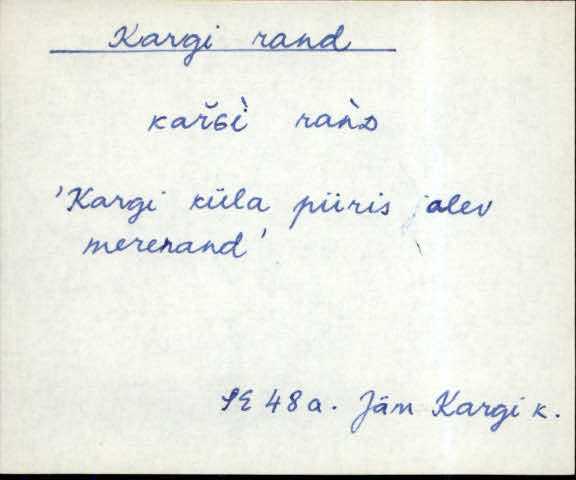 Kargi rand
kař​ɢì rаǹᴅ
'Kargi küla piiris olev
mererand'
SE 48a. Jäm Kargi k.